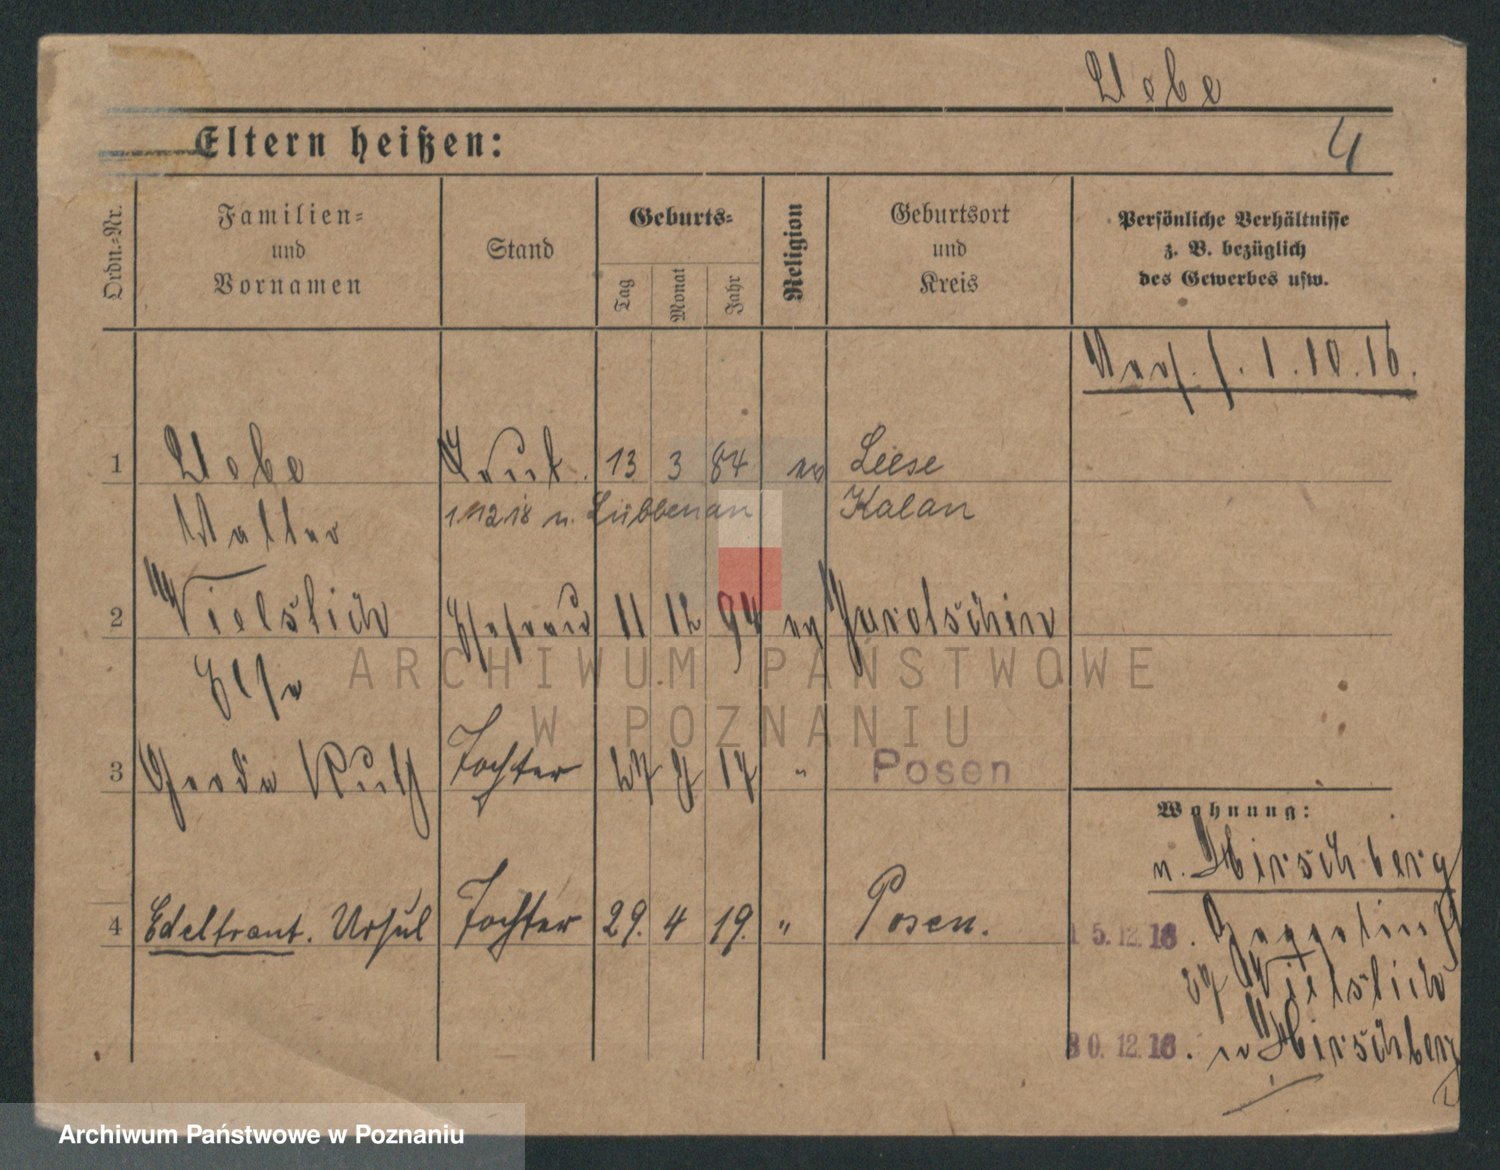 Uebe
Eltern heißen:
4
Ordn.-Nr.
Familien-
und
Vornamen
Stand
Geburts-
Tag
Monat
Jahr
Religion
Geburtsort
und
Kreis
Persönliche Verhältnisse
z. B. bezüglich
des Gewerbes usw.
1.10.16.
1 Uebe 13 3 84 ev Liese
Walter 1.12.18 n. Lübbenau Kalau
2 Vielstich Ehefrau 11 12 94 ev Jarotschin
Else
3 Gerda Ruth Tochter 27 17 " Posen
Wohnung:
n. Hirschberg
4 Edeltraut. Ursul Tochter 29. 4 19. " Posen.
15.12.16.
27 Vielstich
30.12.16. n Hirschberg
ARCHIWUM PAŃSTWOWE
W POZNANIU
Archiwum Państwowe w Poznaniu